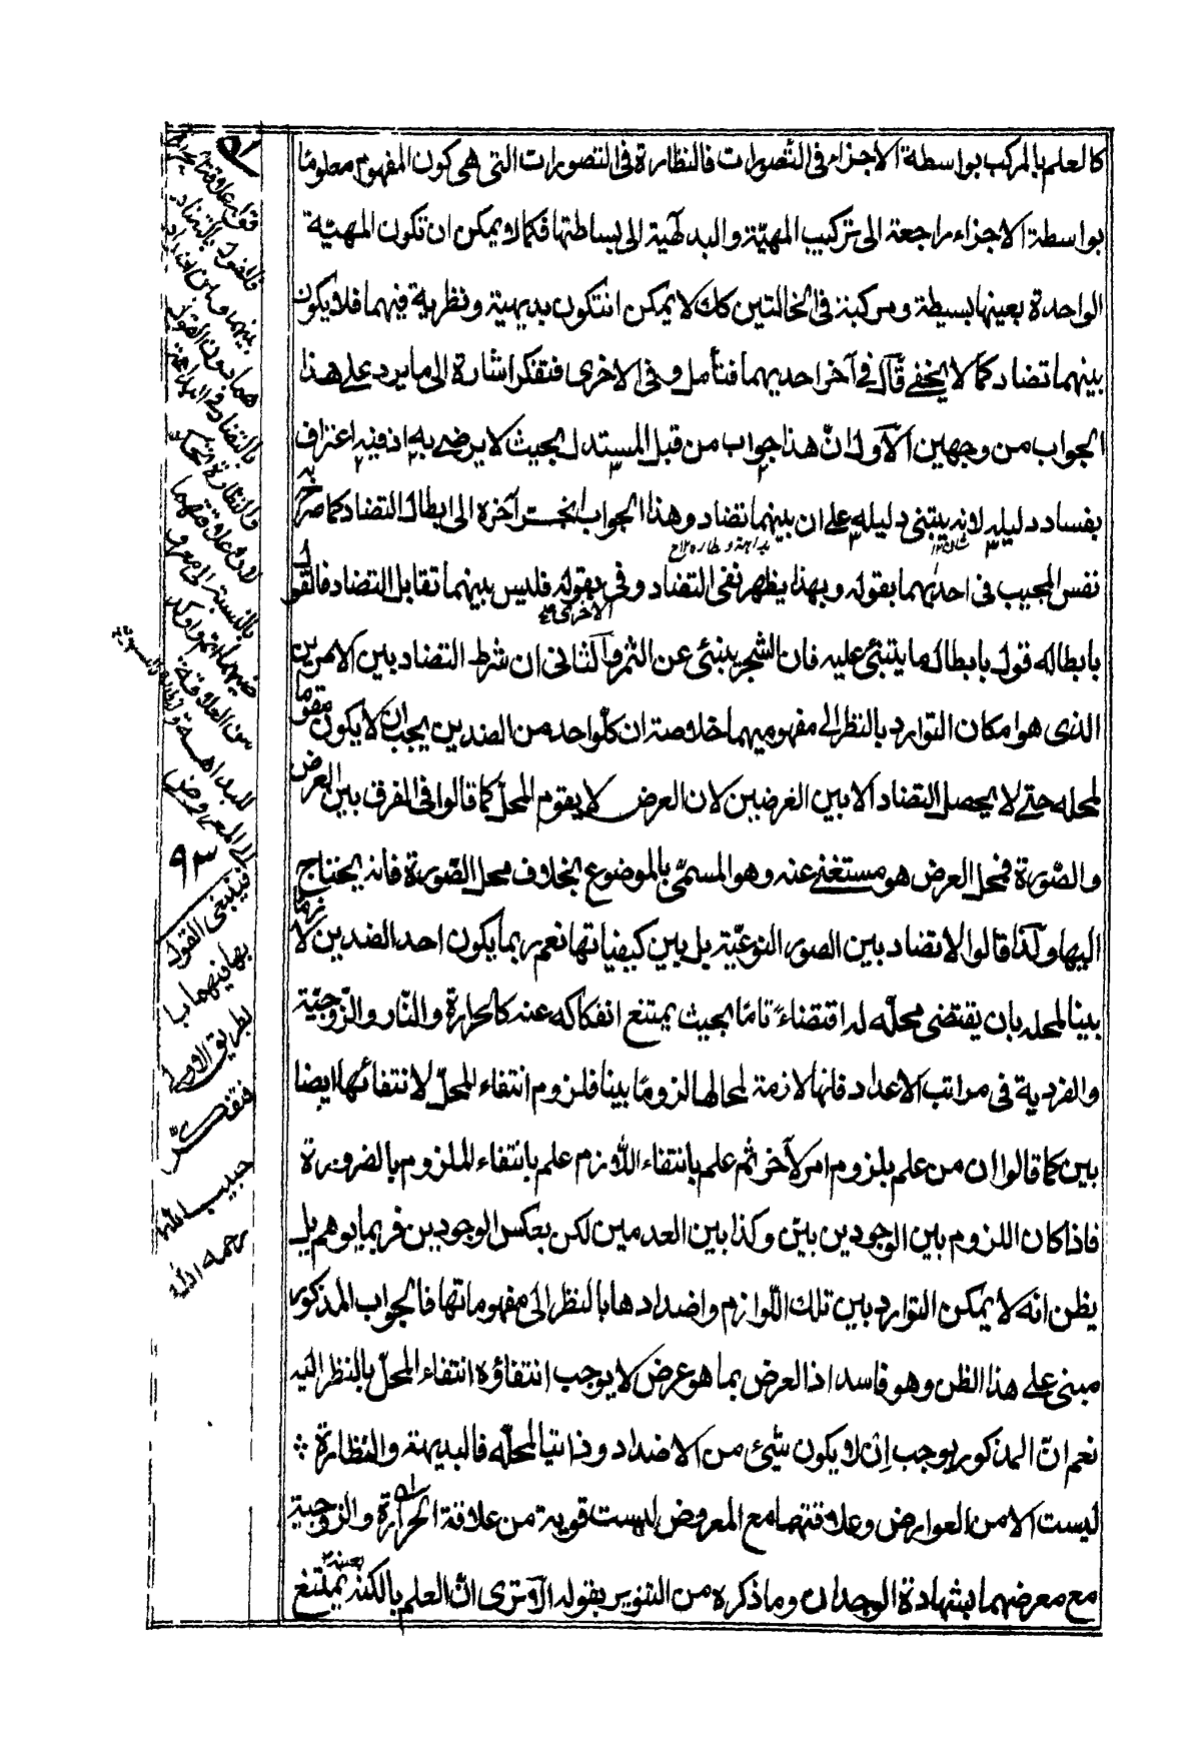 كالعلم بالمركب بواسطة الاجزاء فى التصورات فالنظارة فى التصورات التى هى كون المفهوم معلومًا
بواسطة الاجزاء راجعة الى تركيب المهيّة والبداهية الى بساطتها فكما لا يمكن ان تكون المهيّة
الواحدة بعينها بسيطة ومركبة فى الحالتين كك لا يمكن ان تكون بديهية ونظرية فيهما فلا يكون
بينهما تضاد كما لا يخفے قال فى آخر احديهما فتأمل وفى الاخرى فتفكر اشارة الى ما يرد على هذا
الجواب من وجهين الاول ان هذا جواب من قبل المستدل بحيث لا يرضے به اذ فيه اعتراف
بفساد دليله لانه يبتنى دليله على ان بينهما تضاد وهذا الجواب انجر آخره الى ابطال التضاد كما صرح
نفس المجيب فى احديهما بقوله وبهذا يظهر نفى التضاد وفى الاخرى بقوله فليس بينهما تقابل التضاد فالقول
بابطاله قول بابطال ما يبتنى عليه فان الشجر ينبئ عن الثمر والثانى ان شرط التضاد بين الامرين
الذى هو امكان التوارد بالنظر الى مفهوميهما خلاصته ان كلّ واحد من الضدين يجب ان لا يكون مقومًا
لمحله حتے لا يحصل التضاد الا بين العرضين لان العرض لا يقوم المحل كما قالوا فى الفرق بين العرض
والصّورة فمحل العرض هو مستغنے عنه وهو المسمّى بالموضوع بخلاف محل الصّورة فانه يحتاج
اليها ولذا قالوا لا تضاد بين الصور النوعيّة بل بين كيفياتها نعم ربما يكون احد الضدين لازما
بينا لمحله بان يقتضى محلّه له اقتضاءً تامًا بحيث يمتنع انفكاكه عنه كالحرارة والنّار والزّوجيّة
والفردية فى مراتب الاعداد فانها لازمة لمحالها لزومًا بينا فلزوم انتفاء المحلّ لانتفائها ايضا
بين كما قالوا ان من علم بلزوم امر لآخر ثم علم بانتفاء اللّازم علم بانتفاء الملزوم بالضرورة
فاذا كان اللزوم بين الوجودين بيّن وكذا بين العدمين لكن بعكس الوجودين فربما يوهم بل
يظن انه لا يمكن التوارد بين تلك اللّوازم واضدادها بالنظر الى مفهوماتها فالجواب المذكور
مبنى على هذا الظن وهو فاسد اذ العرض بما هو عرض لا يوجب انتفاؤه انتفاء المحلّ بالنظر اليه
نعم انّ المذكور يوجب ان لا يكون شيئ من الاضداد وذاتيا لمحلّه فالبديهة والنظارة
ليست الا من العوارض وعلاقتهما مع المعروض ليست قوية من علاقة الحرارة والزوجية
مع معرضهما بشهادة الوجدان وما ذكره من التنوير بقوله الا ترى انّ العلم بالكنه يمتنع
قوله علاقة
فالقول بالتضاد
بينهما وبين اضداد
هما دون القول
بالتضاد فى البداهة
والنظارة تحكم
لان علاقتهما
بالنسبة الى معرو
ضيهما اتم واوكد
من العلاقة
للبداهة
الى المعروض
٩٣
فينبغى القول
بها فيهما
بطريق الاولى
فتفكر
حبيب الله
رحمه الله